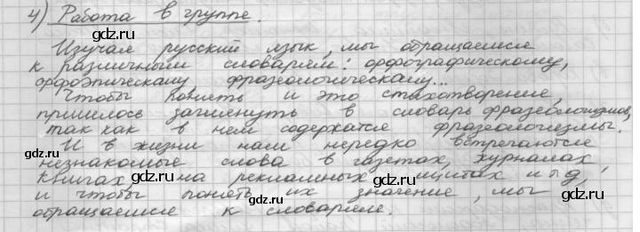 4) Работа в группе.
Изучая русский язык, мы обращаемся
к различным словарям: орфографическому,
орфоэпическому фразеологическому...
Чтобы понять и это стихотворение,
пришлось заглянуть в словарь фразеологизмов,
так как в нем содержатся фразеологизмы.
И в жизни нам нередко встречаются
незнакомые слова в газетах, журналах
книгах, на рекламных щитах и т.д,
и чтобы понять их значение, мы
обращаемся к словарям.
gdz.ru
gdz.ru
gdz.ru
gdz.ru
gdz.ru
gdz.ru
gdz.ru